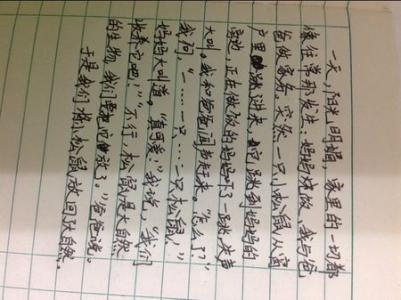 一天,阳光明媚,家里的一切都
像往常那发生:妈妈烧饭、我与爸
爸做家务。突然,一只小松鼠从窗
户里跳进来,它跳到妈妈的
旁边,正在做饭的妈妈吓了一跳,决声
大叫。我和爸爸闻声赶来。"怎么了?"
我问,"一……一只……一只松鼠!"
妈妈大叫道。"真可爱!"我说,"我们
收养它吧!""不行,松鼠是大自然
的生物,我们要把它放了。"爸爸说。
于是我们将小松鼠放回了大自然。